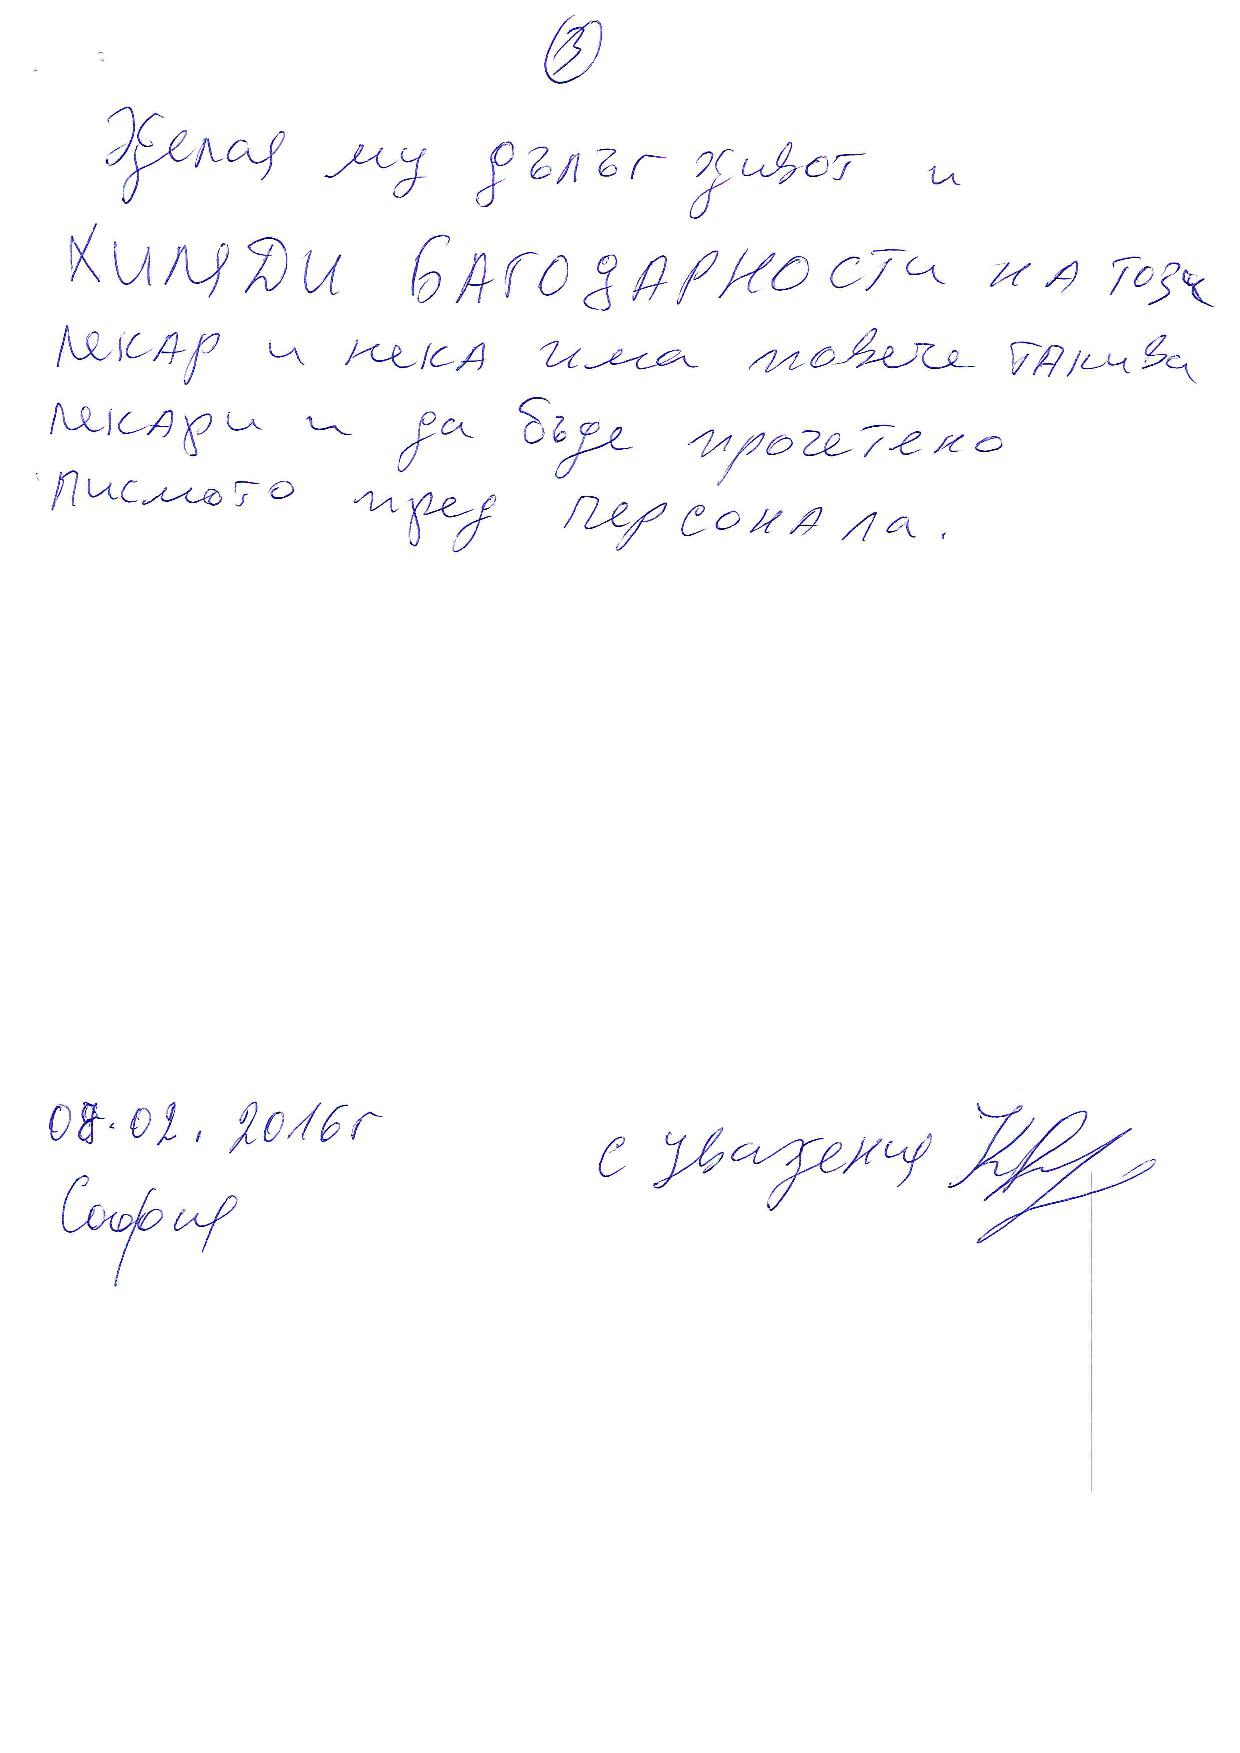 3
Желая му дълъг живот и
ХИЛЯДИ БАГОДАРНОСТИ НА този
лекар и нека има повече такива
лекари и да бъде прочетено
писмото пред персонала.
08.02.2016г
с уважения
София